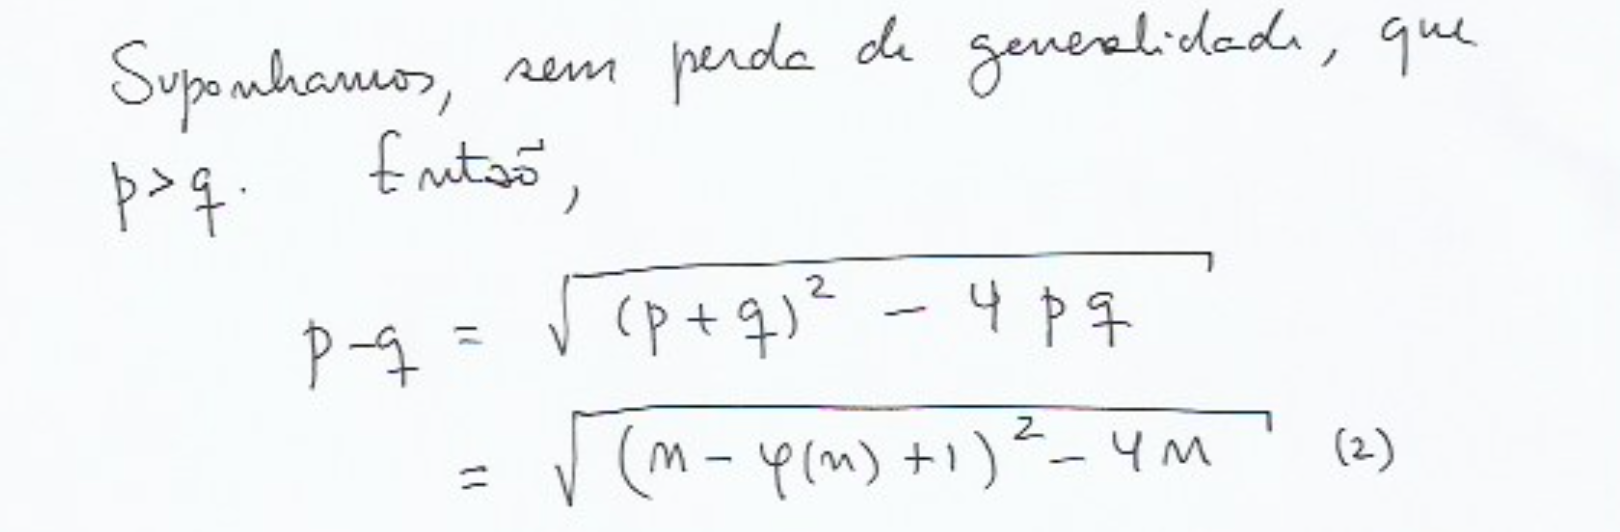 Suponhamos, sem perda de generalidade, que
p>q. Então,
p-q = √((p+q)² - 4pq)
= √((n-φ(n)+1)² - 4n) (2)